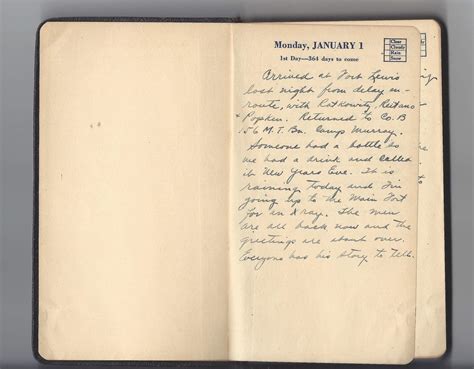 Monday, JANUARY 1
1st Day—364 days to come
Clear
Cloudy
Rain
Snow
Arrived at Fort Lewis
last night from delay en-
route, with Ratkowitz, Reitano
+ Popken. Returned to Co. B
156 M.T. Bn. Camp Murray.
Someone had a bottle so
we had a drink and called
it New Years Eve. It is
raining today and I'm
going up to the Main Fort
for an X ray. The men
are all back now and the
greetings are about over.
Everyone has his story to tell.